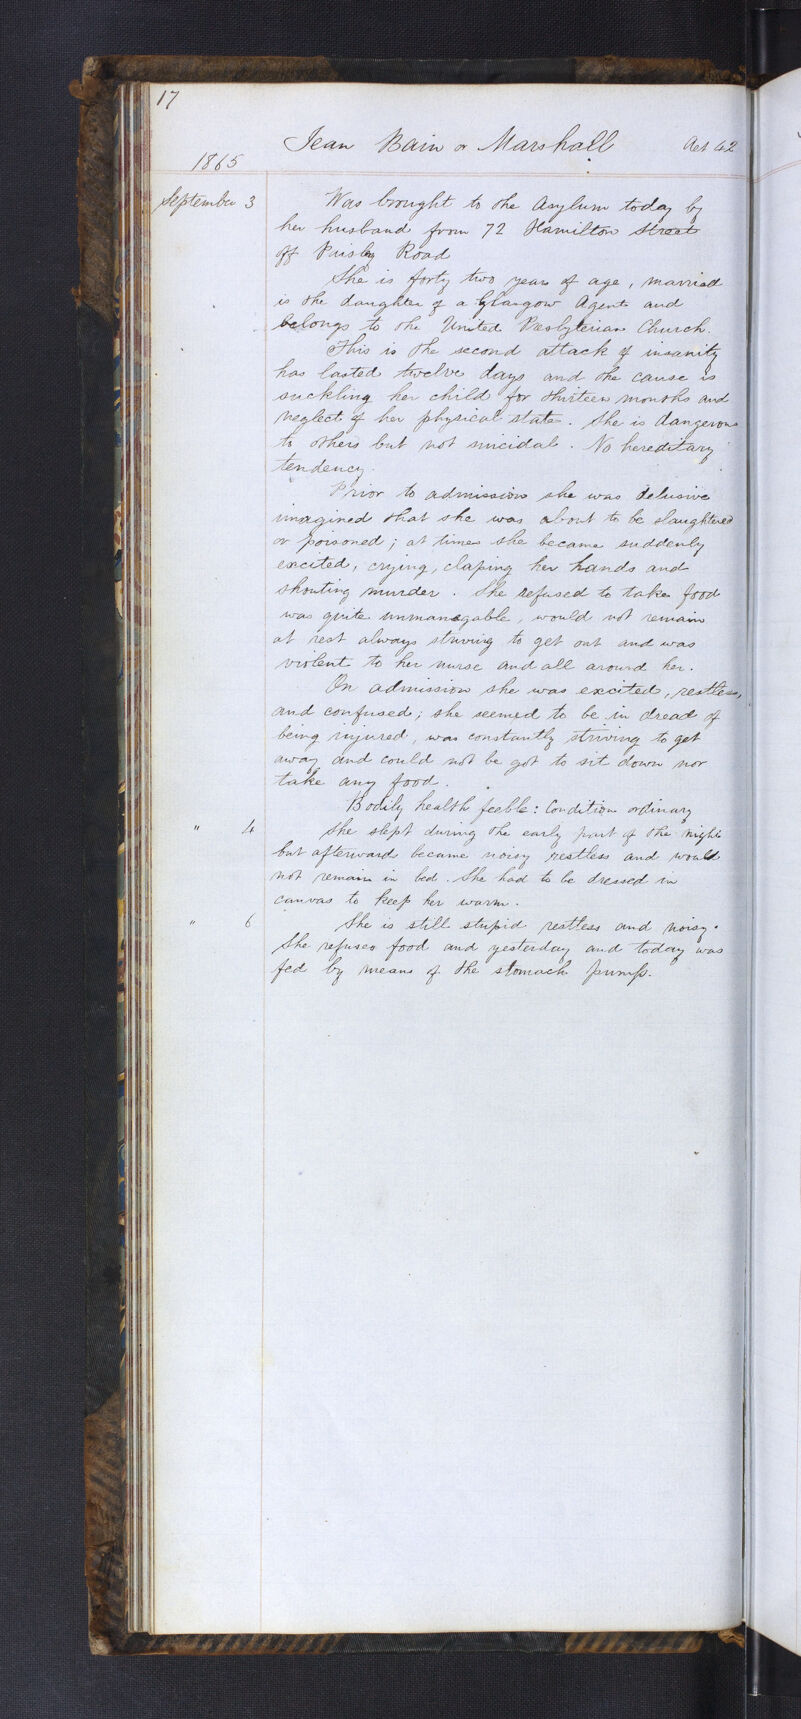 17
Jean Bain or Marshall Aet 42
1865
September 3 Was brought to the Asylum today by
her husband from 72 Hamilton Street
off Paisley Road
She is forty two years of age, married
is the daughter of a Glasgow Agent and
belongs to the United Presbyterian Church.
This is the second attack of insanity
has lasted twelve days and the cause is
suckling her child for thirteen months and
neglect of her physical state. She is dangerous
to others but not suicidal. No hereditary
tendency.
Prior to admission she was delusive
imagined that she was about to be slaughtered
or poisoned; at times she became suddenly
excited, crying, claping her hands and
shouting murder. She refused to take food
was quite unmanagable, would not remain
at rest always striving to get out and was
violent to her nurse and all around her.
On admission she was excited, restless,
and confused; she seemed to be in dread of
being injured, was constantly striving to get
away and could not be got to sit down nor
take any food.
Bodily health feeble: Condition ordinary
" 4 She slept during the early part of the night
but afterward became noisy restless and would
not remain in bed. She had to be dressed in
canvas to keep her warm.
" 6 She is still stupid restless and noisy.
She refuses food and yesterday and today was
fed by means of the stomach pump.